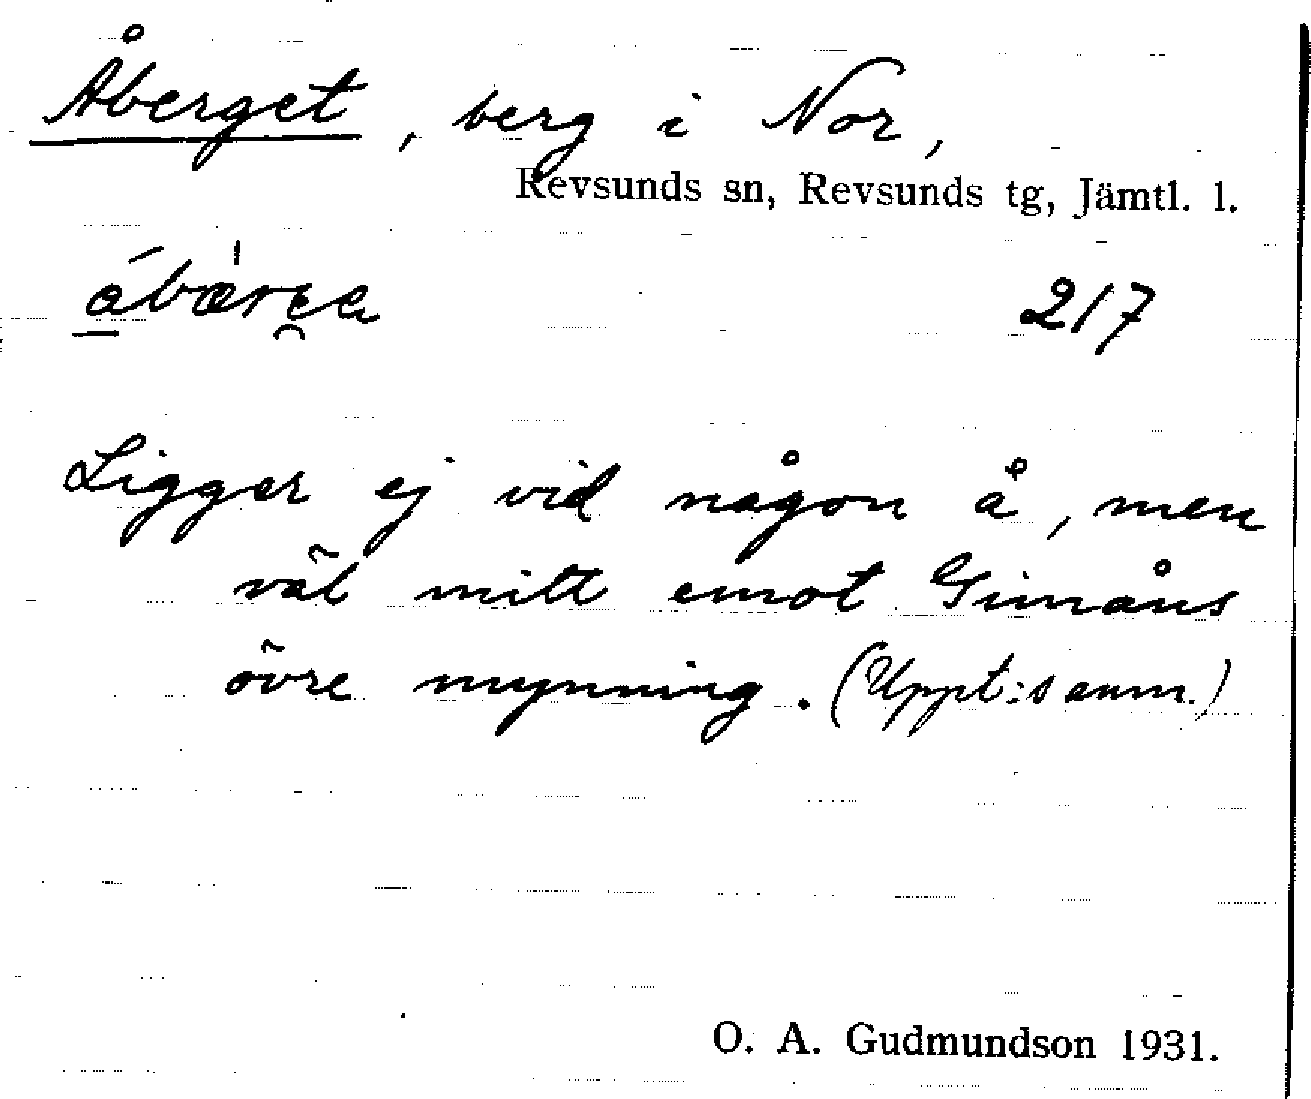 Åberget, berg i Nor,
Revsunds sn, Revsunds tg, Jämtl. l.
217
Ligger ej vid någon å, men
väl mitt emot Gimåns
övre mynning. (Uppt:s anm.)
O. A. Gudmundson 1931.